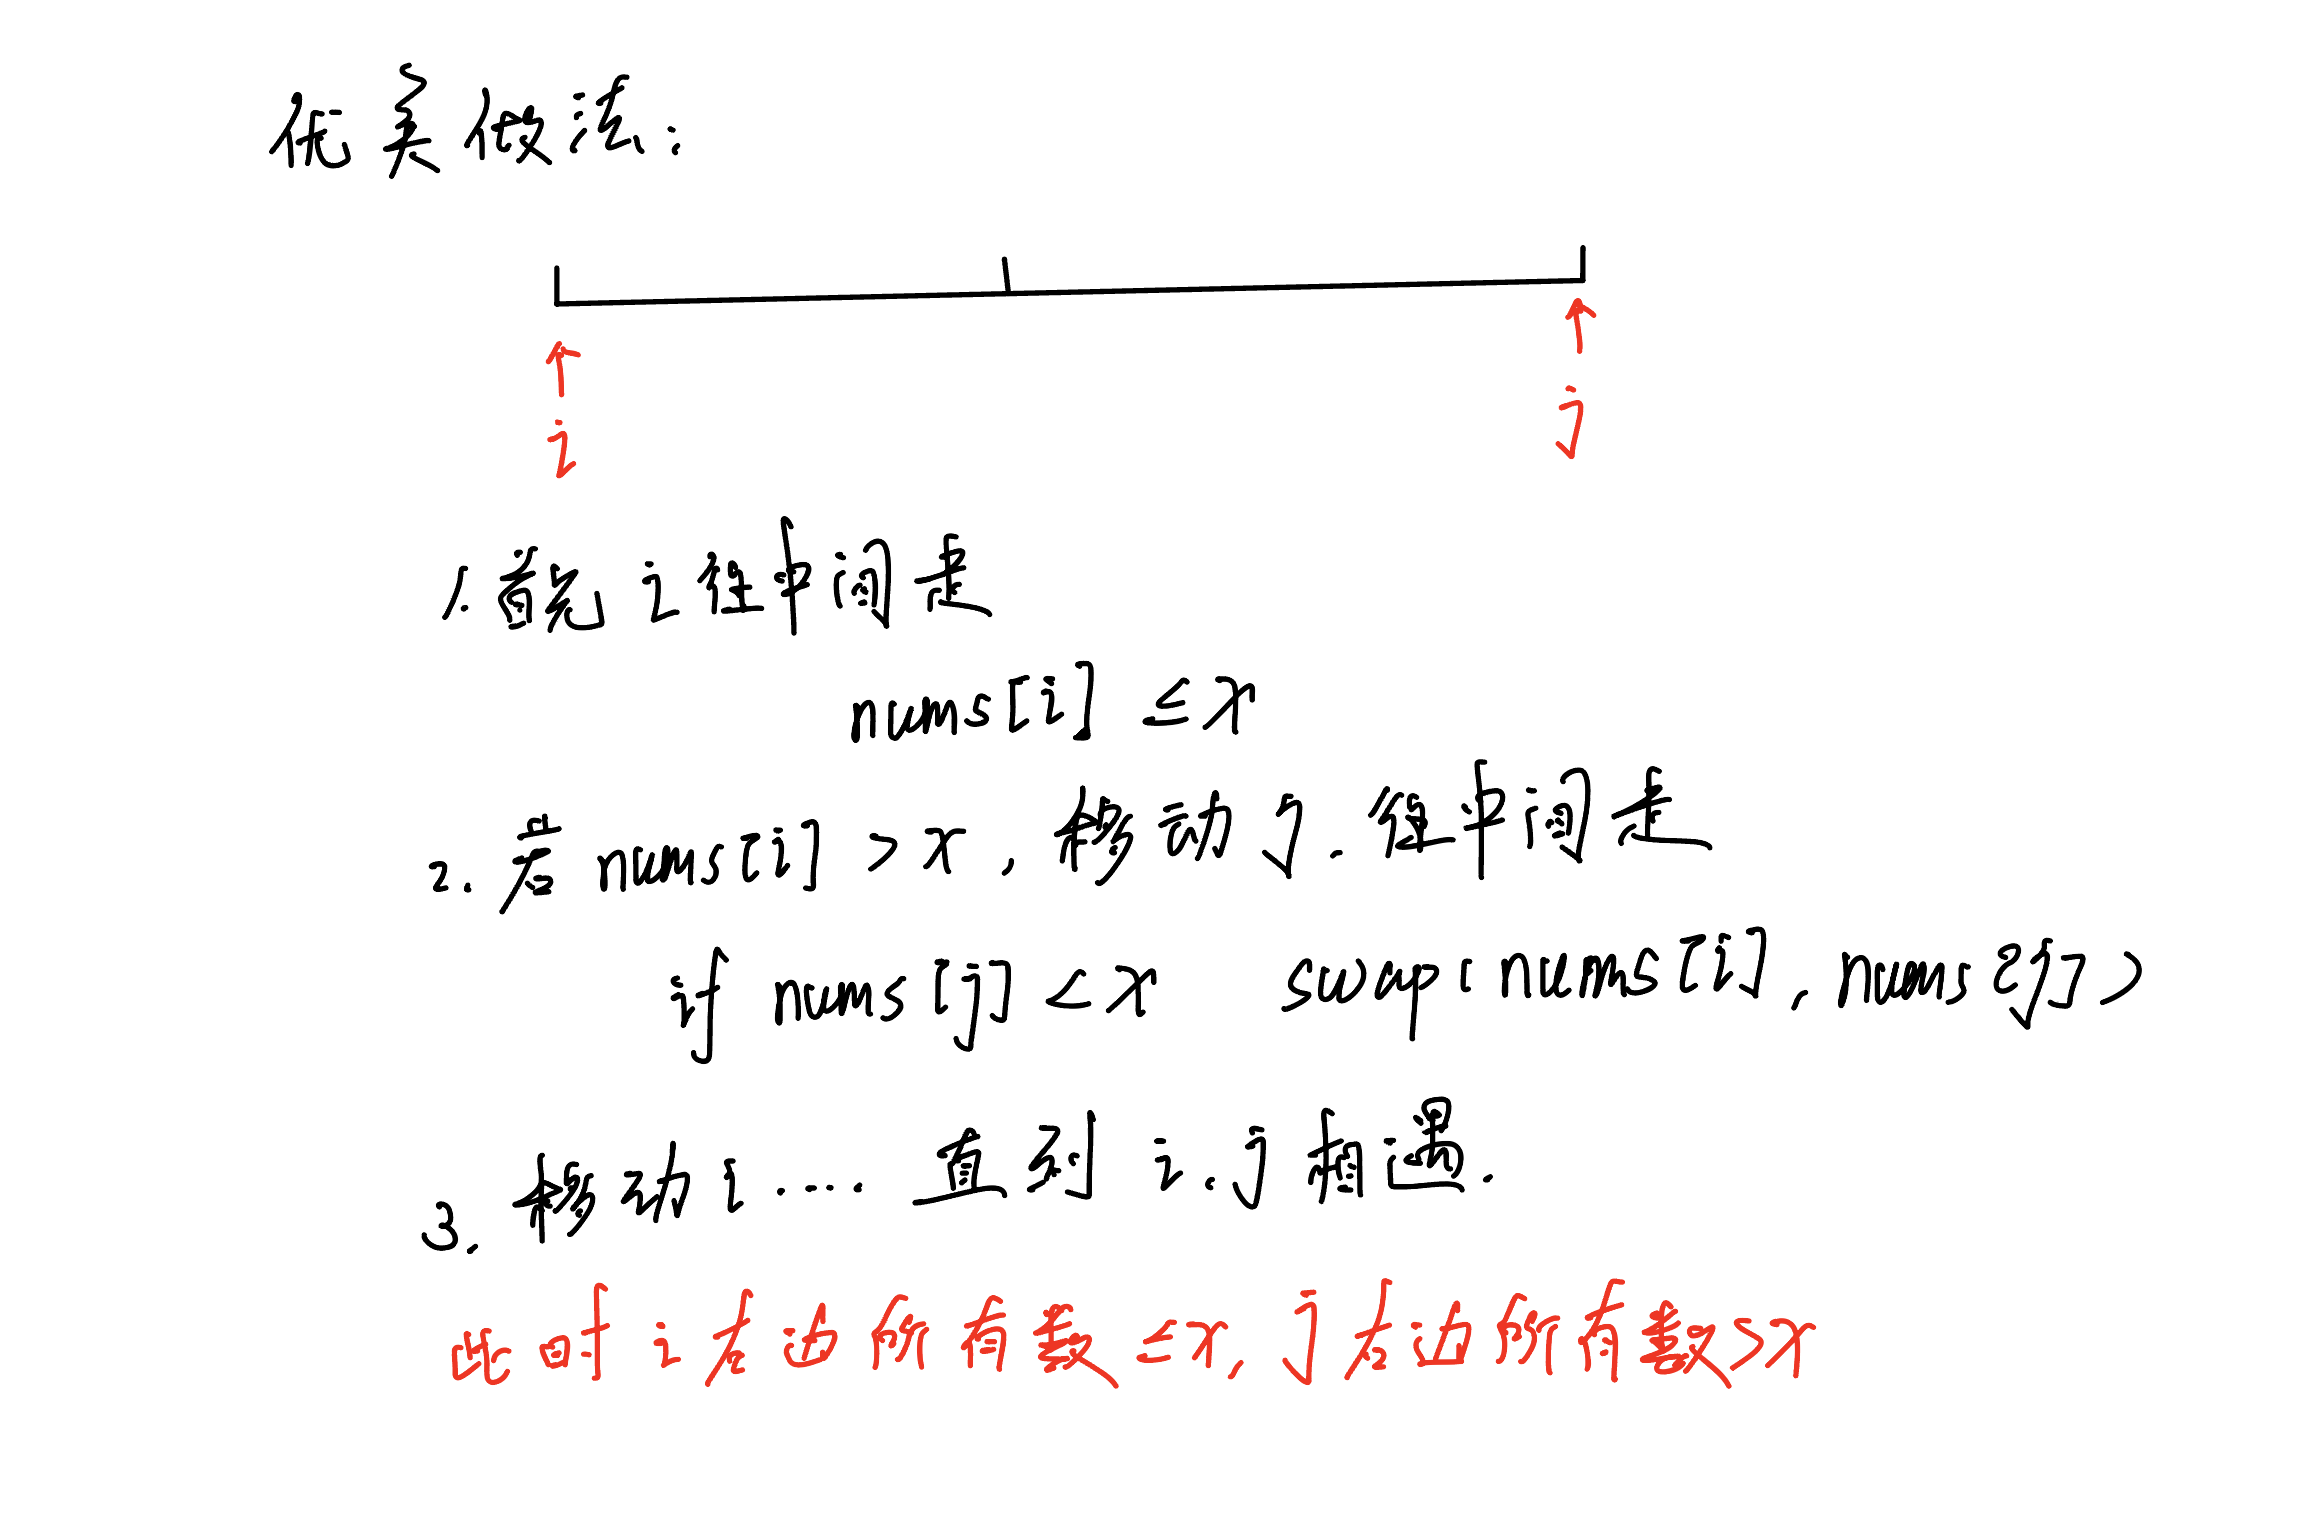 优美做法:
i
j
1. 首先 i 往中间走
nums[i] ≤ x
2. 若 nums[i] > x, 移动 j. 往中间走
if nums[j] < x swap(nums[i], nums[j])
3. 移动 i .... 直到 i.j 相遇.
此时 i 左边所有数 ≤ x, j 右边所有数 > x